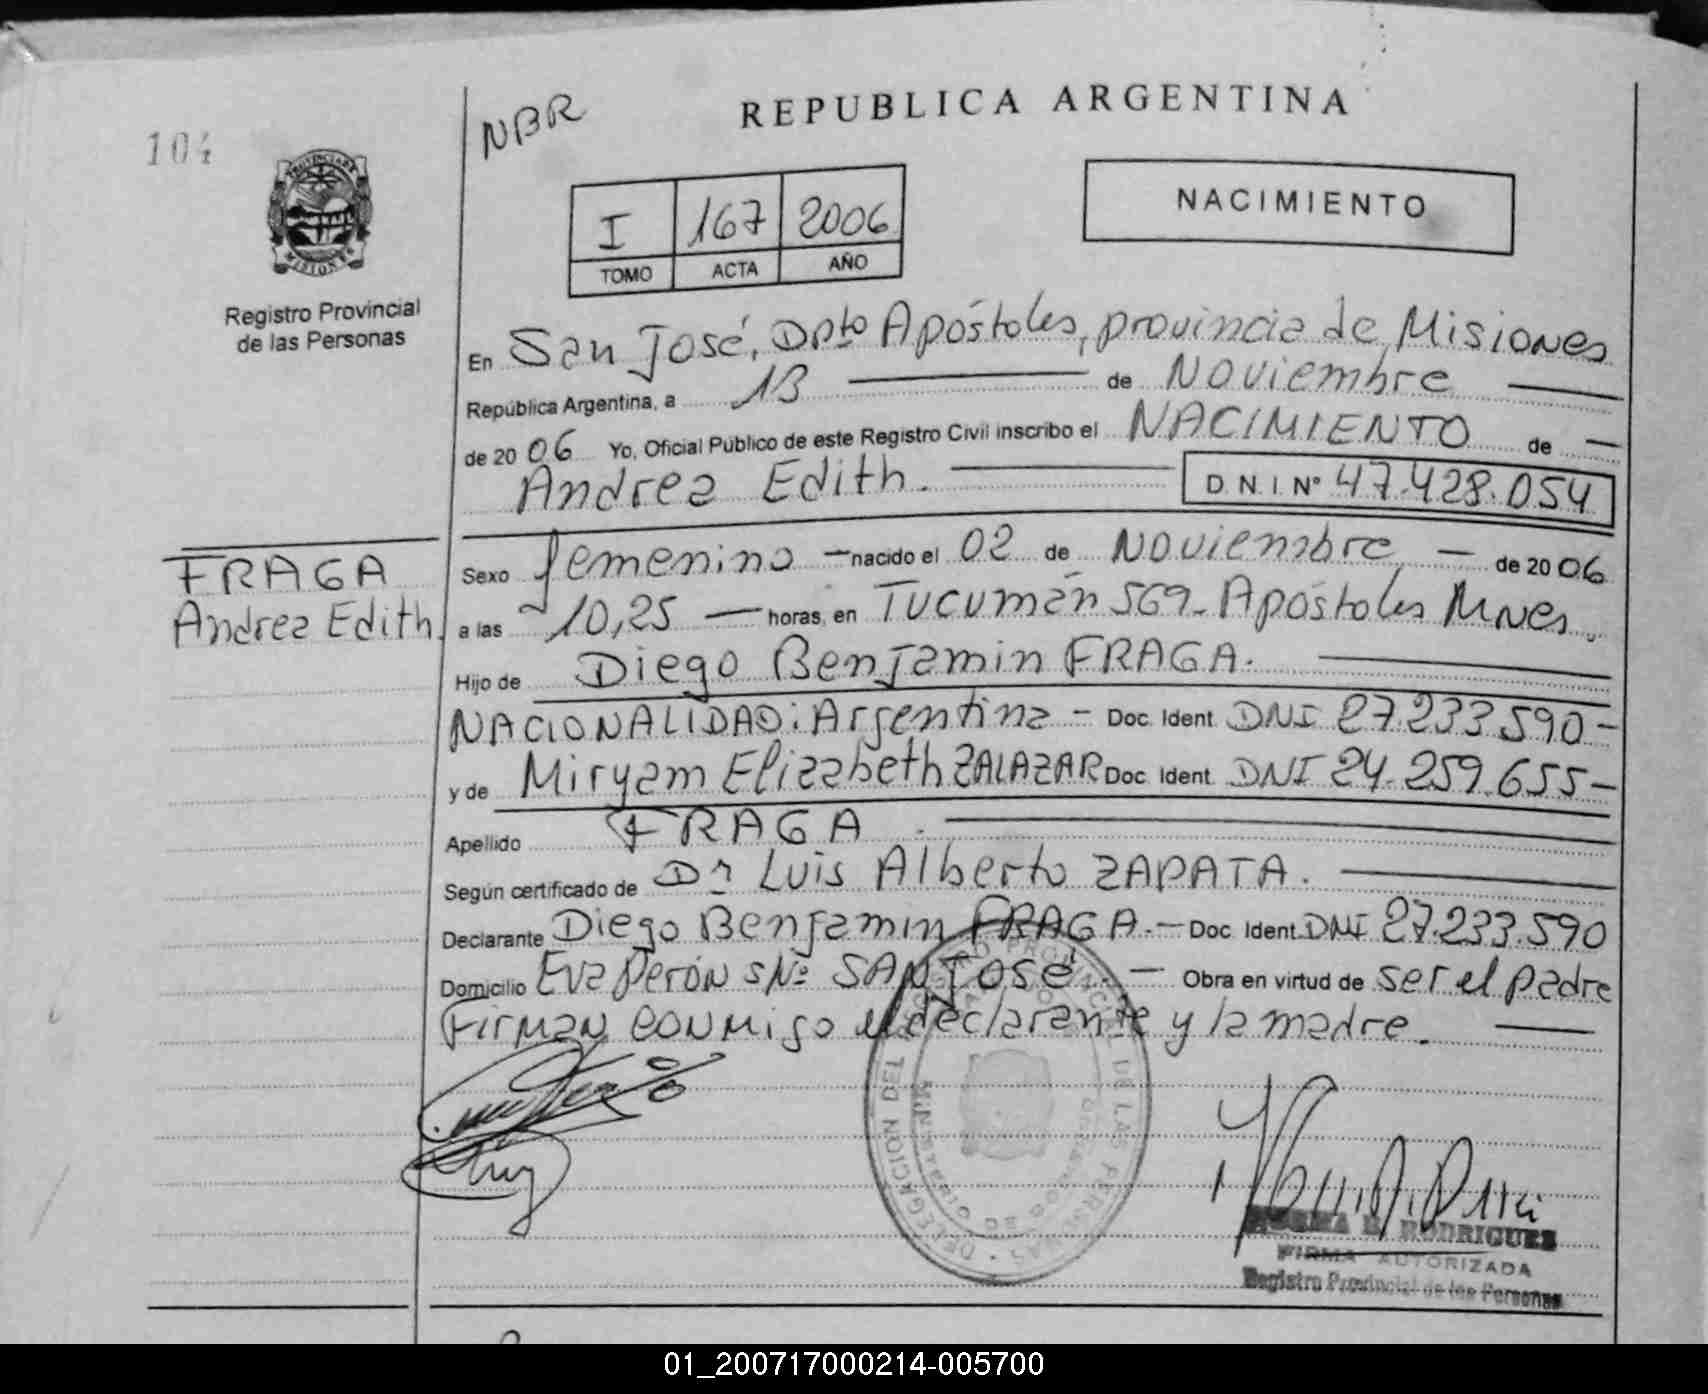 REPUBLICA ARGENTINA
NBR
104
PROVINCIA DE
MISIONES
Registro Provincial
de las Personas
I 167 2006
TOMO ACTA AÑO
NACIMIENTO
En San José, Dpto Apóstoles, provincia de Misiones
República Argentina, a 13 de Noviembre
de 2006 Yo, Oficial Público de este Registro Civil inscribo el NACIMIENTO de
Andrea Edith. D.N.I. Nº 47.428.054
FRAGA
Andrea Edith.
Sexo femenino - nacido el 02 de Noviembre - de 2006
a las 10,25 - horas, en Tucumán 569- Apóstoles Mnes.
Hijo de Diego Benjamin FRAGA.
NACIONALIDAD: Argentina - Doc. Ident. DNI 27.233.590-
y de Miryam Elizabeth ZALAZAR Doc. Ident. DNI 24.259.655-
Apellido FRAGA.
Según certificado de Dr Luis Alberto ZAPATA.
Declarante Diego Benjamin FRAGA.- Doc. Ident. DNI 27.233.590
Domicilio Eva Perón s/Nº SAN José. - Obra en virtud de ser el padre
Firman conmigo el declarante y la madre.
DELEGACION DEL REGISTRO PROVINCIAL DE LAS PERSONAS
MINISTERIO DE GOBIERNO
NORMA B. RODRIGUEZ
FIRMA AUTORIZADA
Registro Provincial de las Personas
01_200717000214-005700